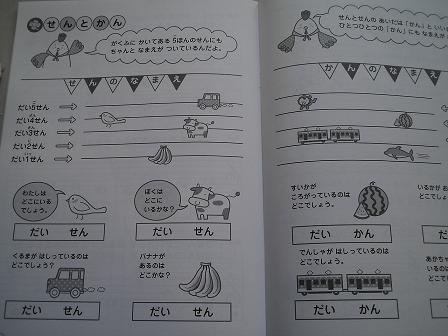 せんとかん
がくふに かいてある 5ほんのせんにも
ちゃんと なまえが ついているんだよ。
せんのなまえ
だい5せん
だい4せん
だい3せん
だい2せん
だい1せん
わたしは
どこにいる
でしょう。
ぼくは
どこに
いるかな？
だい せん
だい せん
くるまが はしっているのは
どこでしょう？
バナナが
あるのは
どこかな？
だい せん
だい せん
せんとせんの あいだは「かん」と いい
ひとつひとつの「かん」にも なまえが
かんのなまえ
すいかが
ころがっているのは
どこでしょう。
いるかが お
どこでしょ
だい かん
でんしゃが はしっているのは
どこでしょう。
あかちゃ
いるのは
どこでし
だい かん